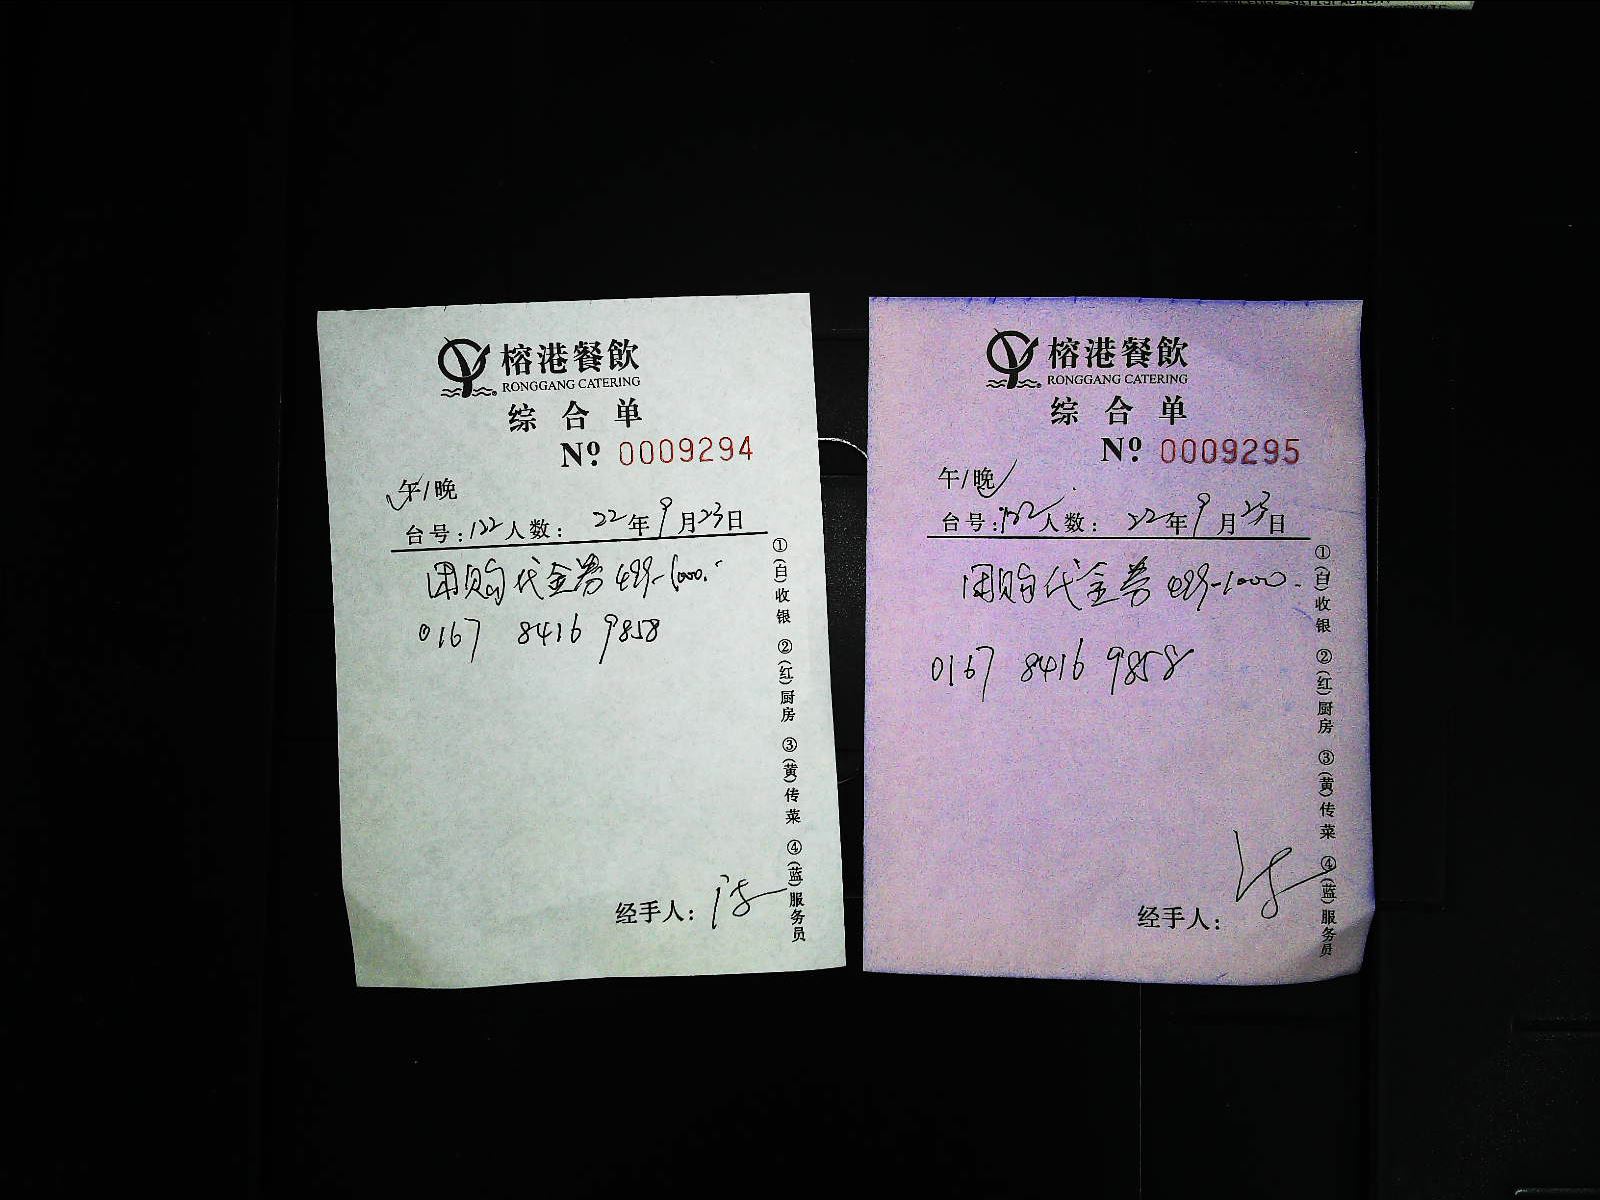 榕港餐飲
RONGGANG CATERING
综合单
Nº 0009294
午/晚
台号:122人数: 22年9月23日
团购代金券499-1000.
0167 8416 9858
经手人:
①(白)收银 ②(红)厨房 ③(黄)传菜 ④(蓝)服务员
榕港餐飲
RONGGANG CATERING
综合单
Nº 0009295
午/晚
台号:122人数: 22年9月23日
团购代金券499-1000.
0167 8416 9858
经手人:
①(白)收银 ②(红)厨房 ③(黄)传菜 ④(蓝)服务员